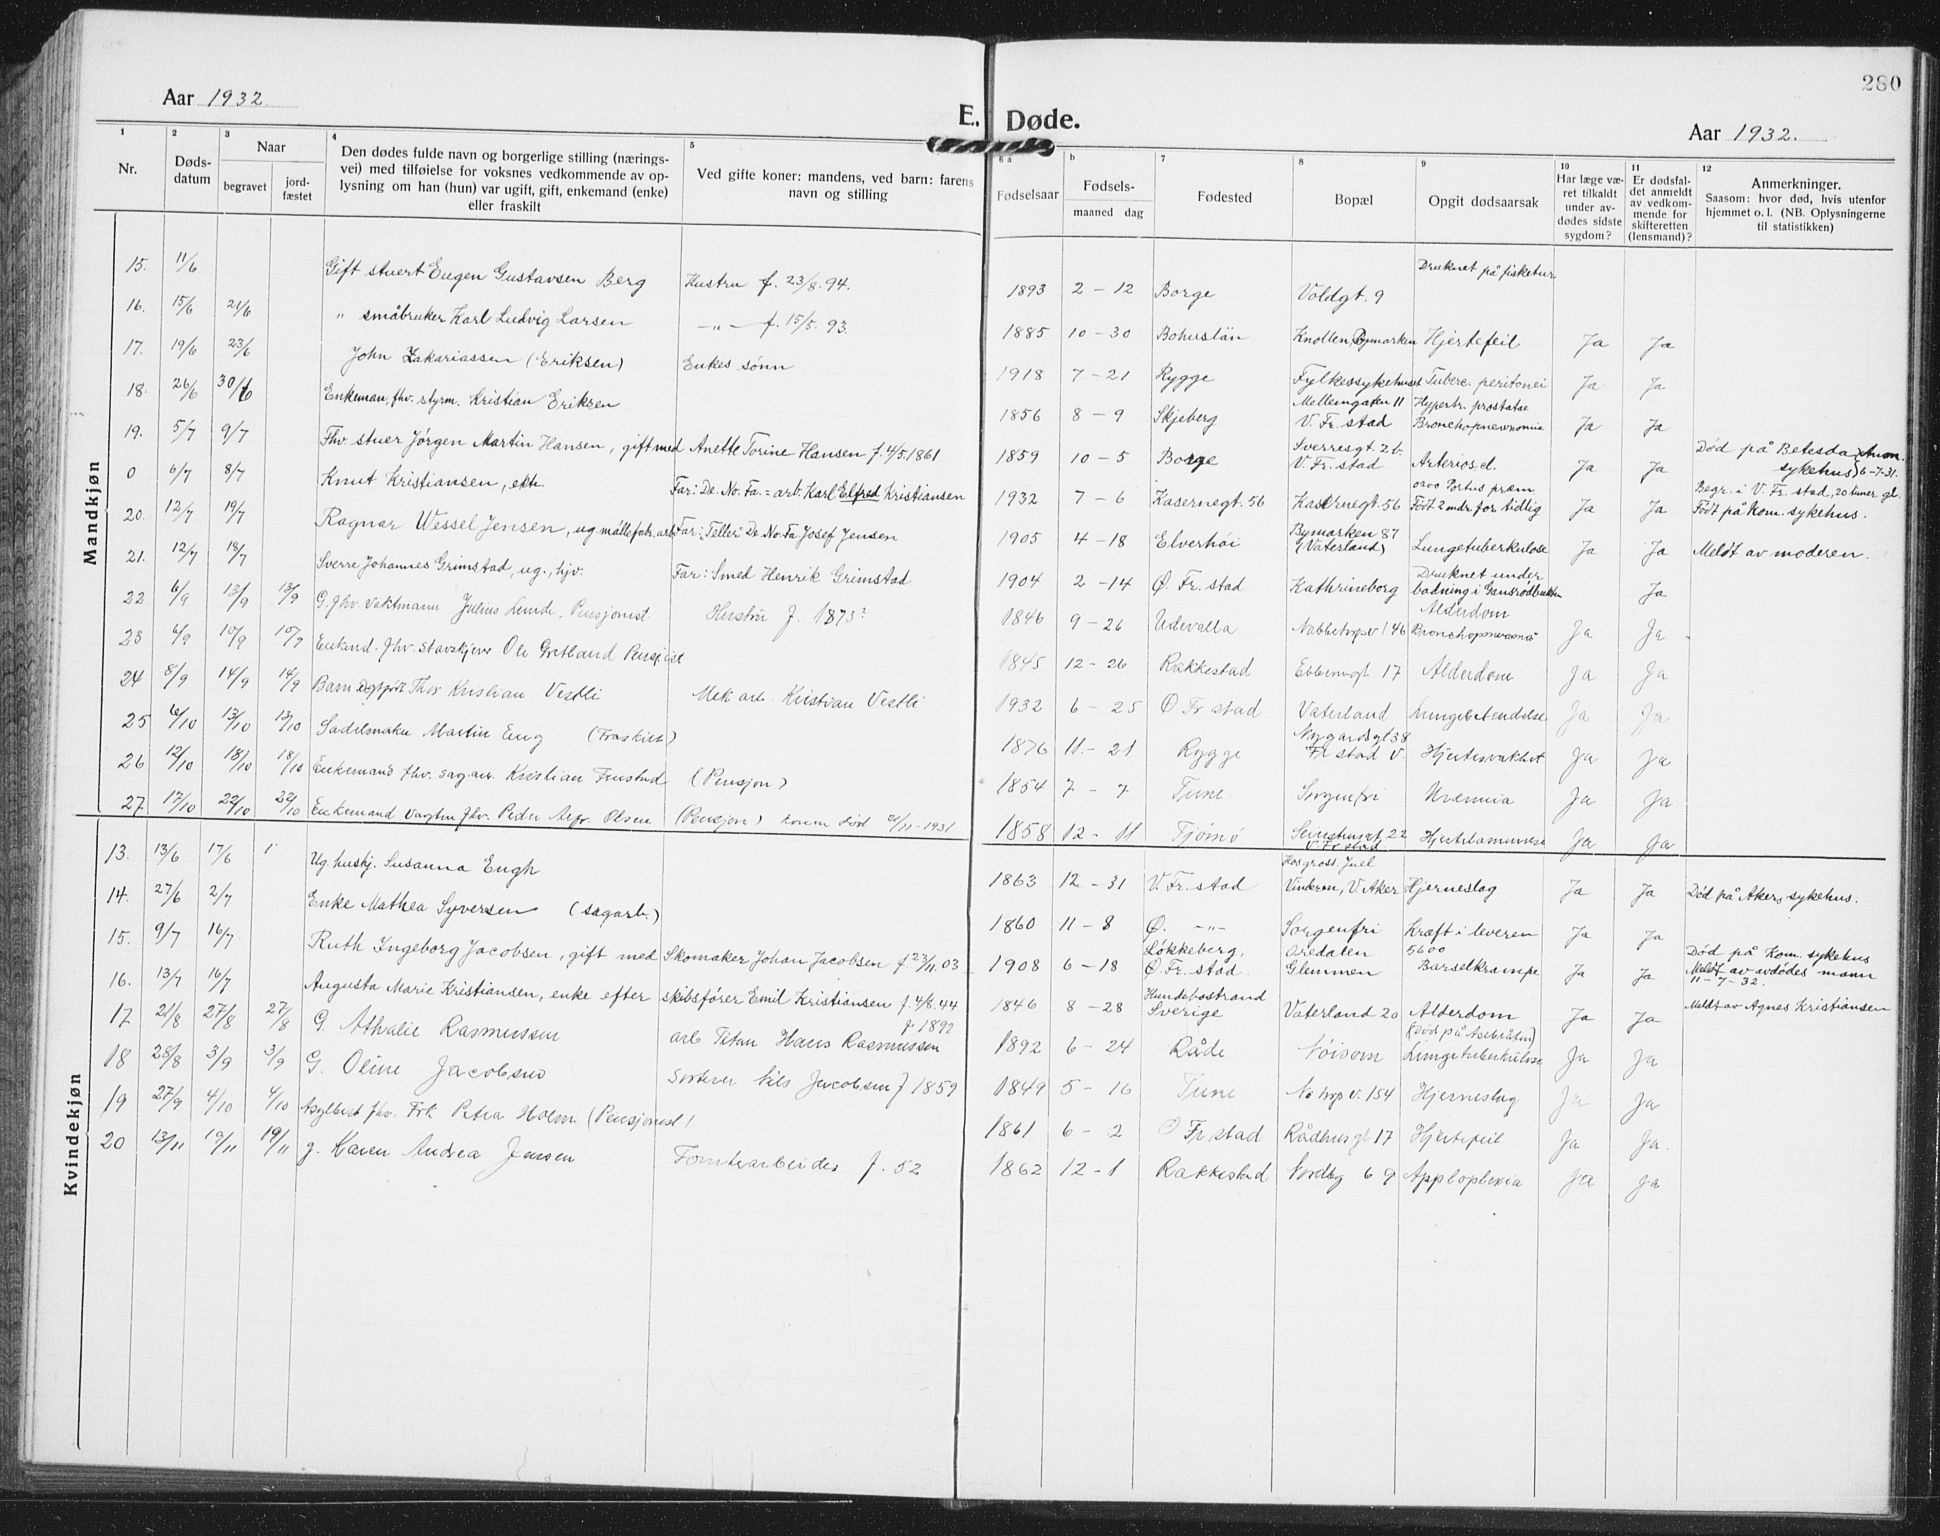 280
Aar 1932.
E. Døde.
Aar 1932.
1
2
3
4
5
6 a
b
7
8
9
10
11
12
Nr.
Døds-
datum
Naar
begravet
jord-
fæstet
Den dødes fulde navn og borgerlige stilling (nærings-
vei) med tilføielse for voksnes vedkommende av op-
lysning om han (hun) var ugift, gift, enkemand (enke)
eller fraskilt
Ved gifte koner: mandens, ved barn: farens
navn og stilling
Fødselsaar
Fødsels-
maaned dag
Fødested
Bopæl
Opgit dødsaarsak
Har læge væ-
ret tilkaldt
under av-
dødes sidste
sygdom?
Er dødsfal-
det anmeldt
av vedkom-
mende for
skifteretten
(lensmand)?
Anmerkninger.
Saasom: hvor død, hvis utenfor
hjemmet o. l. (NB. Oplysningerne
til statistikken)
Mandkjøn
15. 11/6 Gift stuert Eugen Gustavsen Berg Hustru f. 23/8.94. 1893 2-12 Borge Voldgt. 9 Druknet på fisketur
16. 15/6 21/6 " småbruker Karl Ludvig Larsen -"- f. 15/5.93. 1885 10-30 Bohuslän Knollen, Bymarken Hjertefeil Ja Ja
17. 19/6 23/6 John Zakariassen (Eriksen) Enkes sønn 1918 7-21 Rygge Fylkessykehuset Tuberc. peritonei Ja Ja
18. 26/6 30/6 Enkeman, fhv. styrm. Kristian Eriksen 1856 8-9 Skjeberg Mellemgaten 11 V. Fr.stad Hypertr. prostatae Bronchopneumonia Ja Ja
19. 5/7 9/7 Fhv. stuer Jørgen Martin Hansen, gift med Anette Torine Hansen f. 4/5.1861 1859 10-5 Borge Sverresgt. 2b. V. Fr.stad Arteriosel. Ja Ja Død på Betesda sykehus 6-7-31.
0 6/7 8/7 Knut Kristiansen, ekte Far: De. No. Fa. = arb. Karl Elfred Kristiansen 1932 7-6 Kasernegt. 56 Kasernegt. 56 Partus præm Født 2 mdr for tidlig Ja Ja Begr. i V. Fr.stad, 20 timer gl. Født på Kom. sykehus.
20. 12/7 19/7 Ragnar Wessel Jensen, ug. møllefabr. arb. Far: "Teller" De. No. Fa Josef Jensen 1905 4-18 Elverhøi Bymarken 87 (Vaterland) Lungetuberkulose Ja Ja Meldt av moderen.
21. 12/7 18/7 Sverre Johannes Grimstad, ug., hjv. Far: Smed Henrik Grimstad 1904 2-14 Ø. Fr.stad Kathrineborg Druknet under badning i Gansrødbukten Ja
22 6/9 13/9 13/9 G. fhv. vaktmann Julius Lunde, Pensjonist. Hustru f. 1873? 1846 9-26 Udevalla Nabbetorpv 146 Alderdom Bronchopneumoni Ja Ja
23 6/9 10/9 10/9 Enkmd. fhv. stavskjerer Ole Gretland Pensjoist 1845 12-26 Rakkestad Ebbensgt 17 Alderdom Ja Ja
24 8/9 14/9 14/9 Barn Thor Kristian Vestli Mek arb. Kristian Vestli 1932 6-25 Ø Fr stad Vaterland Lungebetendelse Ja Ja
25 6/10 13/10 13/10 Sadelmaker Martin Eng (Fraskilt) 1876 11-21 Rygge Nygaardsgt 38 Fr stad V. Hjertesvakhet Ja Ja
26 12/10 18/10 18/10 Enkemand fhv. sagarb. Kristian Finstad (Pensjon) 1854 7-7 Tune Sorgenfri Uremia Ja Ja
27 17/10 22/10 22/10 Enkemand Vagtm. fhv. Peder Olsen (Pensjon) konen død 1931 1858 12-11 Tjømø 22 V. Fr stad Hjertelammelse Ja Ja
Kvindekjøn
13. 13/6 17/6 Ug. husbj. Susanna Engh 1863 12-31 V. Fr.stad Hos gross. Juel Vinderen, V Aker Hjerneslag Ja Ja Død på Akers sykehus.
14. 27/6 2/7 Enke Mathea Syversen (sagarb.) 1860 11-8 Ø. -"- Sorgenfri Kræft i leveren Ja Ja
15. 9/7 16/7 Ruth Ingeborg Jacobsen, gift med Skomaker Johan Jacobsen f. 23/11.03 1908 6-18 Løkkeberg, Ø. Fr.stad. Aredalen Glemmen 5600 Barselkrampe Ja Ja Død på Kom. sykehus Meldt av avdødes mann 11-7-32.
16. 13/7 16/7 Augusta Marie Kristiansen, enke efter skibsfører Emil Kristiansen f. 4/8.44 1846 8-28 Hundebostrand Sverige Vaterland 20 Alderdom Ja Ja Meldt av Agnes Kristiansen
17 21/8 27/8 27/8 G. Athalie Rasmussen arb Titan Hans Rasmussen f 1892 1892 6-24 Råde Nøisom Lungetuberkulose Ja Ja
18 28/8 3/9 3/9 G. Oline Jacobsen Sorterer Nils Jacobsen f 1859 1849 5-16 Tune No trp v. 154 Hjerneslag Ja Ja
19 27/9 4/10 4/10 Asylbest fhv. Frk Petra Holm (Pensjonist) 1861 6-2 Ø Fr stad Rådhusgt 17 Hjertefeil Ja Ja.
20 13/11 19/11 19/11 g. Karen Andrea Jensen Tomtearbeider f. 52 1862 12-1 Rakkestad Nordbg 69 Apploplexia Ja Ja